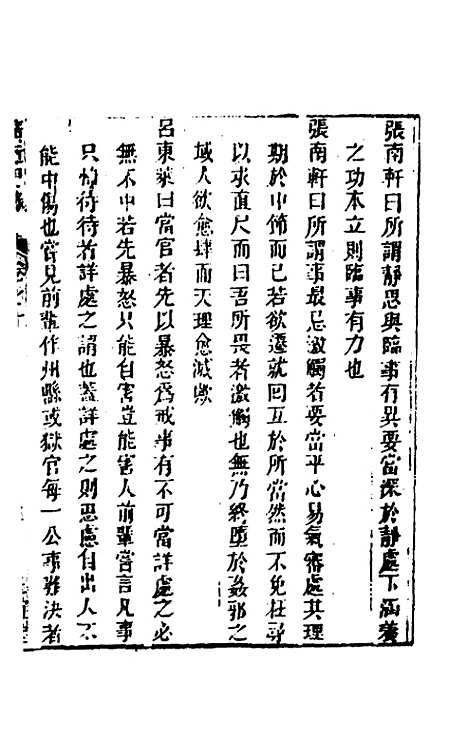 張南軒曰所謂靜思與臨事有異要當深於靜處下涵養
之功本立則臨事有力也
張南軒曰所謂事最忌激觸者要當平心易氣審處其理
期於中節而已若欲遷就回互於所當然而不免枉尋
以求直尺而曰吾所畏者激觸也無乃終墮於姦邪之
域人欲愈肆而天理愈滅歟
呂東萊曰當官者先以暴怒為戒事有不可當詳處之必
無不中若先暴怒只能自害豈能害人前輩嘗言凡事
只怕待待者詳處之謂也蓋詳處之則思慮自出人不
能中傷也嘗見前輩作州縣或獄官每一公事難決者